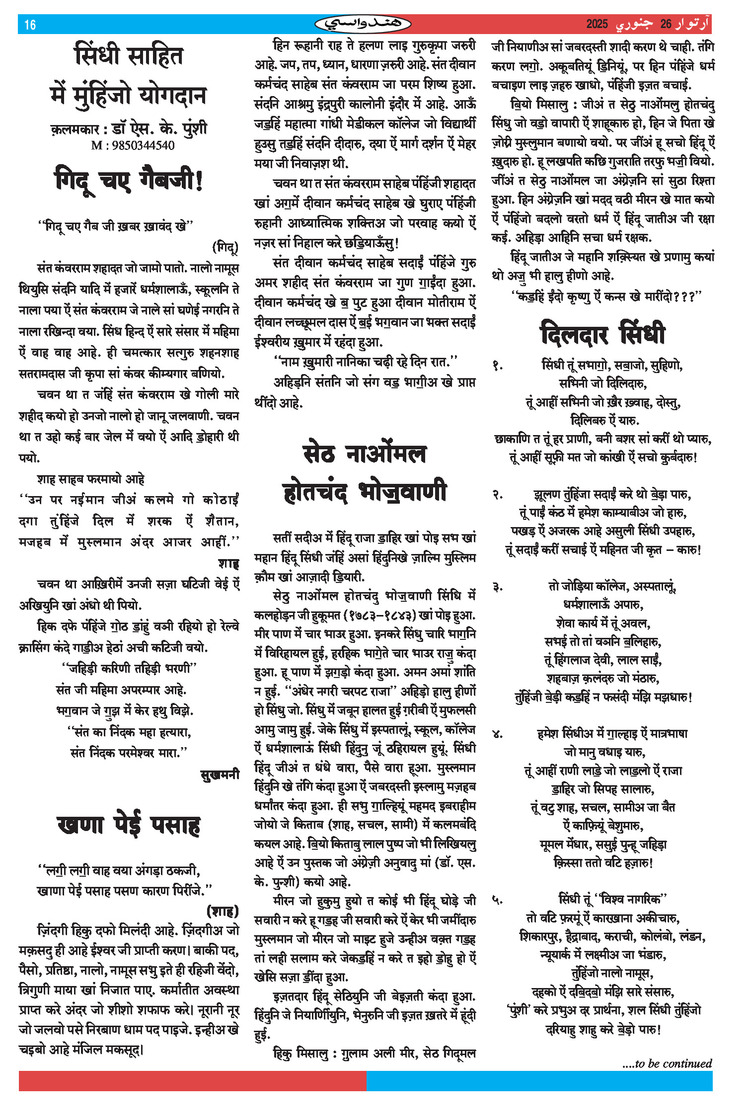 16
هندواسي
آرتوار 26 جنوري 2025
सिंधी साहित
में मुंहिंजो योगदान
क़लमकार : डॉ ऐस. के. पुंशी
M : 9850344540
गिदू चए गैबजी!
‘‘गिदू चए गैब जी ख़बर ख़ावंद खे’’
(गिदू)
संत कंवरराम शहादत जो जामो पातो. नालो नामूस
थियुसि संदनि यादि में हजारें धर्मशालाऊं, स्कूलनि ते
नाला पया ऐं संत कंवरराम जे नाले सां घणेई नगरनि ते
नाला रखिन्दा वया. सिंध हिन्द ऐं सारे संसार में महिमा
ऐं वाह वाह आहे. ही चमत्कार सत्गुरु शहनशाह
सतरामदास जी कृपा सां कंवर कीम्यगार बणियो.
चवन था त जंहिं संत कंवरराम खे गोली मारे
शहीद कयो हो उनजो नालो हो जानू जलवाणी. चवन
था त उहो कई बार जेल में वयो ऐं आदि डो॒हारी थी
पयो.
शाह साहब फरमायो आहे
‘‘उन पर नईमान जीअं कलमे गो कोठाईं
दगा तुंहिंजे दिल में शरक ऐं शैतान,
मजहब में मुस्लमान अंदर आजर आहीं.’’
शाह
चवन था आख़िरीमें उनजी सज़ा घटिजी वेई ऐं
अखियुनि खां अंधो थी पियो.
हिक दफे पंहिंजे गो॒ठ डां॒हुं वञी रहियो हो रेल्वे
क्रासिंग कंदे गाडी॒अ हेठां अची कटिजी वयो.
‘‘जहिड़ी करिणी तहिड़ी भरणी’’
संत जी महिमा अपरम्पार आहे.
भग॒वान जे गु॒झ में केर हथु विझे.
‘‘संत का निंदक महा हत्यारा,
संत निंदक परमेश्वर मारा.’’
सुखमनी
खणा पेई पसाह
‘‘लगी॒ लगी॒ वाह वया अंगड़ा ठकजी,
खाणा पेई पसाह पसण कारण पिरींजे.’’
(शाह)
ज़िंदगी हिकु दफो मिलंदी आहे. ज़िंदगीअ जो
मक़सदु ही आहे ईश्वर जी प्राप्ती करण। बाकी पद,
पैसो, प्रतिष्ठा, नालो, नामूस सभु इते ही रहिजी वेंदो,
त्रिगुणी माया खां निजात पाए. कर्मातीत अवस्था
प्राप्त करे अंदर जो शीशो शफाफ करे। नूरानी नूर
जो जलवो पसे निरबाण धाम पद पाइजे. इन्हीअ खे
चइबो आहे मंजिल मकसूद।
हिन रूहानी राह ते हलण लाइ गुरुकृपा जरुरी
आहे. जप, तप, ध्यान, धारणा ज़रुरी आहे. संत दीवान
कर्मचंद साहेब संत कंवरराम जा परम शिष्य हुआ.
संदनि आश्रमु इंद्रपुरी कालोनी इंदौर में आहे. आऊँ
जडहिं महात्मा गांधी मेडीकल कॉलेज जो विद्यार्थी
हुउसु तड॒हिं संदनि दीदारु, दया ऐं मार्ग दर्शन ऐं मेहर
मया जी निवाज़श थी.
चवन था त संत कंवरराम साहेब पंहिंजी शहादत
खां अगु॒में दीवान कर्मचंद साहेब खे घुराए पंहिंजी
रुहानी आध्यात्मिक शक्तिअ जो परवाह कयो ऐं
नज़र सां निहाल करे छडि॒याऊँसु!
संत दीवान कर्मचंद साहेब सदाईं पंहिंजे गुरु
अमर शहीद संत कंवरराम जा गुण गा॒ईंदा हुआ.
दीवान कर्मचंद खे ब॒ पुट हुआ दीवान मोतीराम ऐं
दीवान लच्छूमल दास ऐं ब॒ई भग॒वान जा भक्त सदाईं
ईश्वरीय ख़ुमार में रहंदा हुआ.
‘‘नाम ख़ुमारी नानिका चढ़ी रहे दिन रात.’’
अहिड़नि संतनि जो संग वड॒ भागी॒अ खे प्राप्त
थींदो आहे.
सेठ नाओंमल
होतचंद भोजॿवाणी
सतीं सदीअ में हिंदू राजा डा॒हिर खां पोइ सभ खां
महान हिंदू सिंधी जंहिं असां हिंदुनिखे ज़ाल्मि मुस्लिम
क़ौम खां आज़ादी डि॒यारी.
सेठु नाओंमल होतचंदु भोजॿवाणी सिंधि में
कलहोड़न जी हुकूमत (१७८३-१८४३) खां पोइ हुआ.
मीर पाण में चार भाउर हुआ. इनकरे सिंधु चारि भाग॒नि
में विरिहायल हुई, हरहिक भागे॒ते चार भाउर राजु॒ कंदा
हुआ. हू पाण में झगड़ो कंदा हुआ. अमन अमां शांति
न हुई. ‘‘अंधेर नगरी चरपट राजा’’ अहिड़ो हालु हीणों
हो सिंधु जो. सिंधु में जबून हालत हुई ग़रीबी ऐं मुफलसी
आमु जामु हुई. जेके सिंधु में इस्पतालूं, स्कूल, कॉलेज
ऐं धर्मशालाऊं सिंधी हिंदुनु जूं ठहिरायल हुयूं. सिंधी
हिंदू जीअं त धंधे वारा, पैसे वारा हूआ. मुस्लमान
हिंदुनि खे तंगि कंदा हुआ ऐं जबरदस्ती इस्लामु मज़हब
धर्मांतर कंदा हुआ. ही सभु गा॒ल्हियूं महमद इबराहीम
जोयो जे किताब (शाह, सचल, सामी) में कलमबंदि
कयल आहे. बि॒यो किताबु लाल पुष्प जो भी लिखियलु
आहे ऐं उन पुस्तक जो अंग्रेज़ी अनुवादु मां (डॉ. एस.
के. पुन्शी) कयो आहे.
मीरन जो हुकुमु हुयो त कोई भी हिंदू घोड़े जी
सवारी न करे हू गड॒ह जी सवारी करे ऐं केर भी जमींदारु
मुस्लमान जो मीरन जो माइटु हुजे उन्हीअ वक़्त गड॒ह
तां लही सलाम करे जेकड॒हिं न करे त इहो डो॒हु हो ऐं
खेसि सज़ा डीं॒दा हुआ.
इज़तदार हिंदू सेठियुनि जी बेइज़ती कंदा हुआ.
हिंदुनि जे नियाणियुनि, भेनुरुनि जी इज़त ख़तरे में हूंदी
हुई.
हिकु मिसालु : गु़लाम अली मीर, सेठ गिदूमल
जी नियाणीअ सां जबरदस्ती शादी करण थे चाही. तंगि
करण लगो॒. अकूबतियूं डि॒नियूं, पर हिन पंहिंजे धर्म
बचाइण लाइ ज़हरु खाधो, पंहिंजी इज़त बचाई.
बि॒यो मिसालु : जीअं त सेठु नाओंमलु होतचंदु
सिंधु जो वडो॒ वापारी ऐं शाहूकारु हो, हिन जे पिता खे
ज़ोरी मुस्लुमान बणायो वयो. पर जीअं हू सचो हिंदू ऐं
ख़ुदारु हो. हू लखपति कछि गुजराति तरफु भजी॒ वियो.
जीअं त सेठु नाओमल जा अंग्रेज़नि सां सुठा रिश्ता
हुआ. हिन अंग्रेज़नि खां मदद वठी मीरन खे मात कयो
ऐं पंहिंजो बदलो वरतो धर्म ऐं हिंदू जातीअ जी रक्षा
कई. अहिड़ा आहिनि सचा धर्म रक्षक.
हिंदू जातीअ जे महानि शख़्स्यित खे प्रणामु कयां
थो अजु॒ भी हालु हीणो आहे.
‘‘कड॒हिं ईंदो कृष्णु ऐं कन्स खे मारींदो???’’
दिलदार सिंधी
१. सिंधी तूं सभागो॒, सबा॒जो, सुहिणो,
सभिनी जो दिलिदारु,
तूं आहीं सभिनी जो ख़ैर ख़्वाह, दोस्तु,
दिलिबरु ऐं यारु.
छाकाणि त तूं हर प्राणी, बनी बशर सां करीं थो प्यारु,
तूं आहीं सूफ़ी मत जो कांखी ऐं सचो कु़र्बदारु!
२. झूलण तुंहिंजा सदाईं करे थो बे॒ड़ा पारु,
तूं पाईं कंठ में हमेश काम्याबीअ जो हारु,
पखड़ ऐं अजरक आहे असुली सिंधी उपहारु,
तूं सदाईं करीं सचाई ऐं महिनत जी कृत – कारु!
३. तो जोड़िया कॉलेज, अस्पतालूं,
धर्मशालाऊं अपारु,
शेवा कार्य में तूं अवल,
सभई तो तां वञनि बलिहारु,
तूं हिंगलाज देवी, लाल साईं,
शहबाज़ क़लंदरु जो मंठारु,
तुंहिंजी बे॒ड़ी कड॒हिं न फसंदी मंझि मझधारु!
४. हमेश सिंधीअ में गा॒ल्हाइ ऐं मात्रभाषा
जो मानु वधाइ यारु,
तूं आहीं राणी लाडे॒ जो लाड॒लो ऐं राजा
डा॒हिर जो सिपह सालारु,
तूं वटु शाह, सचल, सामीअ जा बैत
ऐं काफ़ियूं बेशुमारु,
मूमल मेंधार, ससुई पुन्हू जहिड़ा
क़िस्सा ततो वटि हज़ारु!
५. सिंधी तूं ‘‘विश्व नागरिक’’
तो वटि फ़र्मूं ऐं कारखाना अकीचारु,
शिकारपुर, हैद्राबाद, कराची, कोलंबो, लंडन,
न्यूयार्क में लक्ष्मीअ जा भंडारु,
तुंहिंजो नालो नामूस,
दहको ऐं दबि॒दबो॒ मंझि सारे संसारु,
‘पुंशी’ करे प्रभुअ दृर प्रार्थना, शल सिंधी तुंहिंजो
दरियाहु शाहु करे बे॒ड़ो पारु!
....to be continued